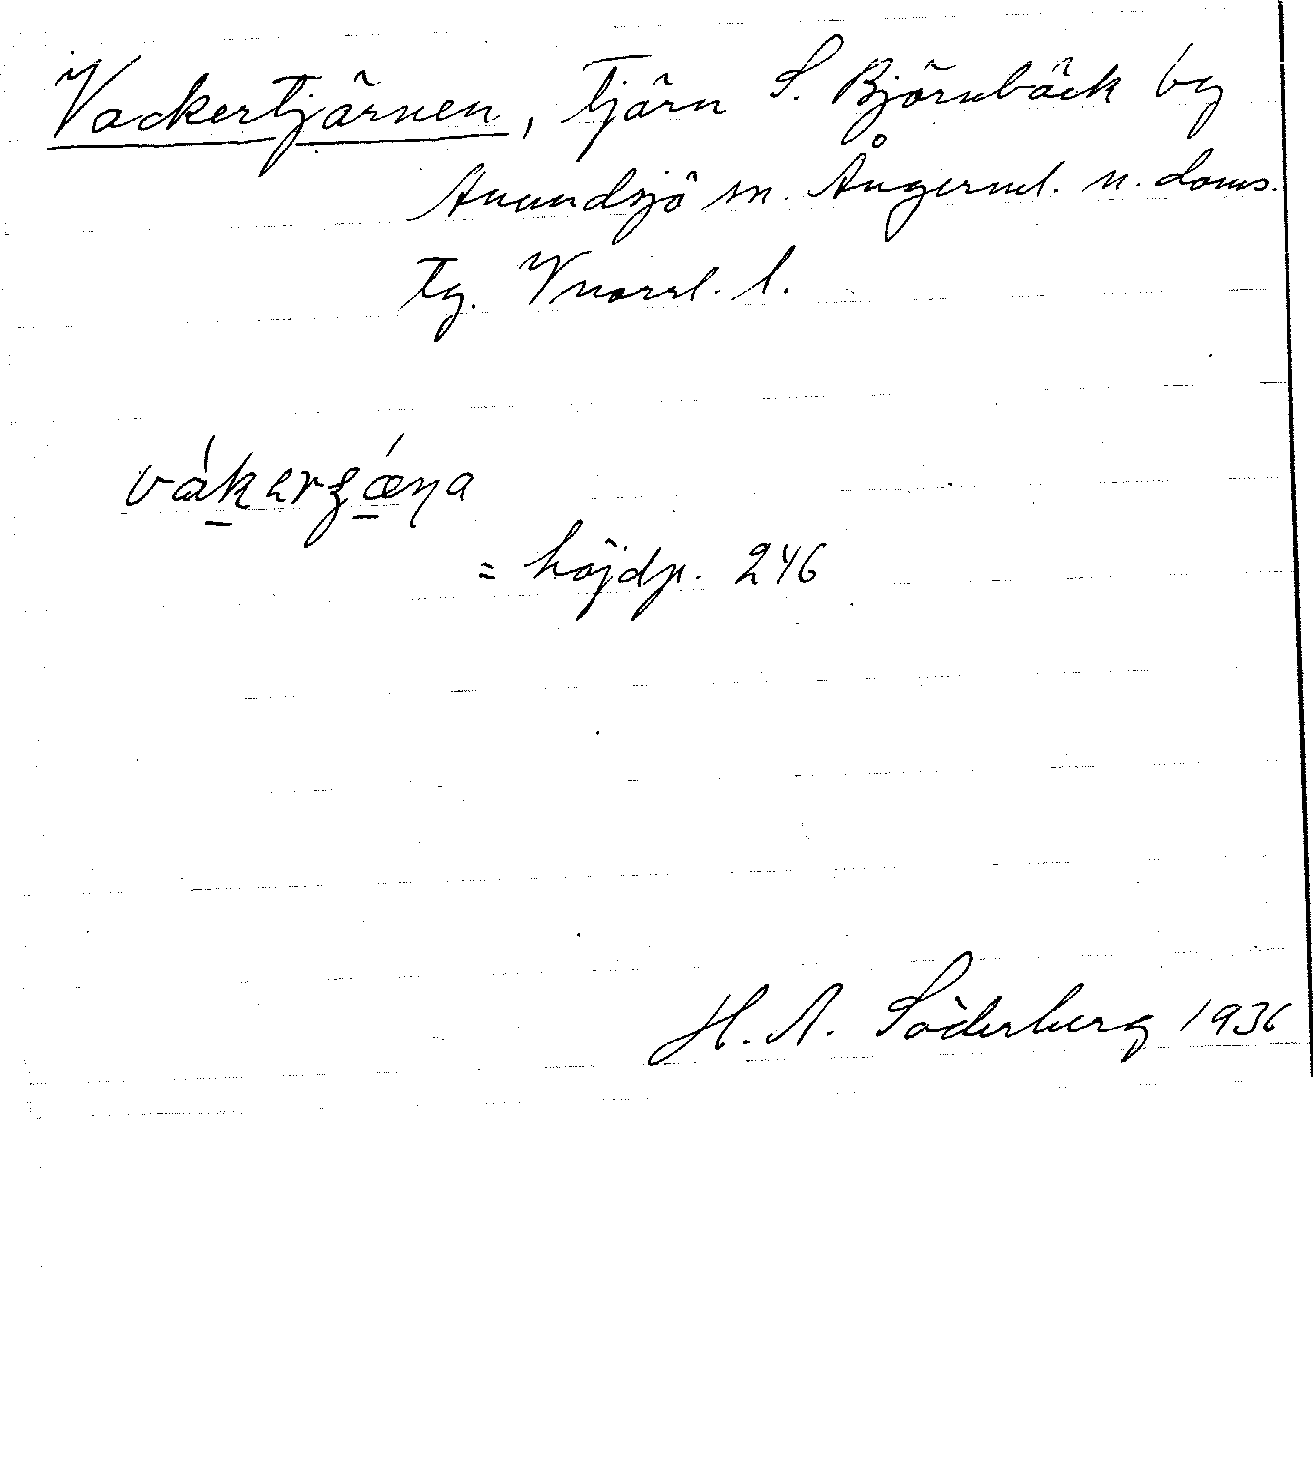 Vackertjärnen, tjärn S. Björnbäck by
Anundsjö sn. Ångerml. n. doms.
tg. Vnorrl. l.
= höjdp. 246
H. A. Söderberg 1936